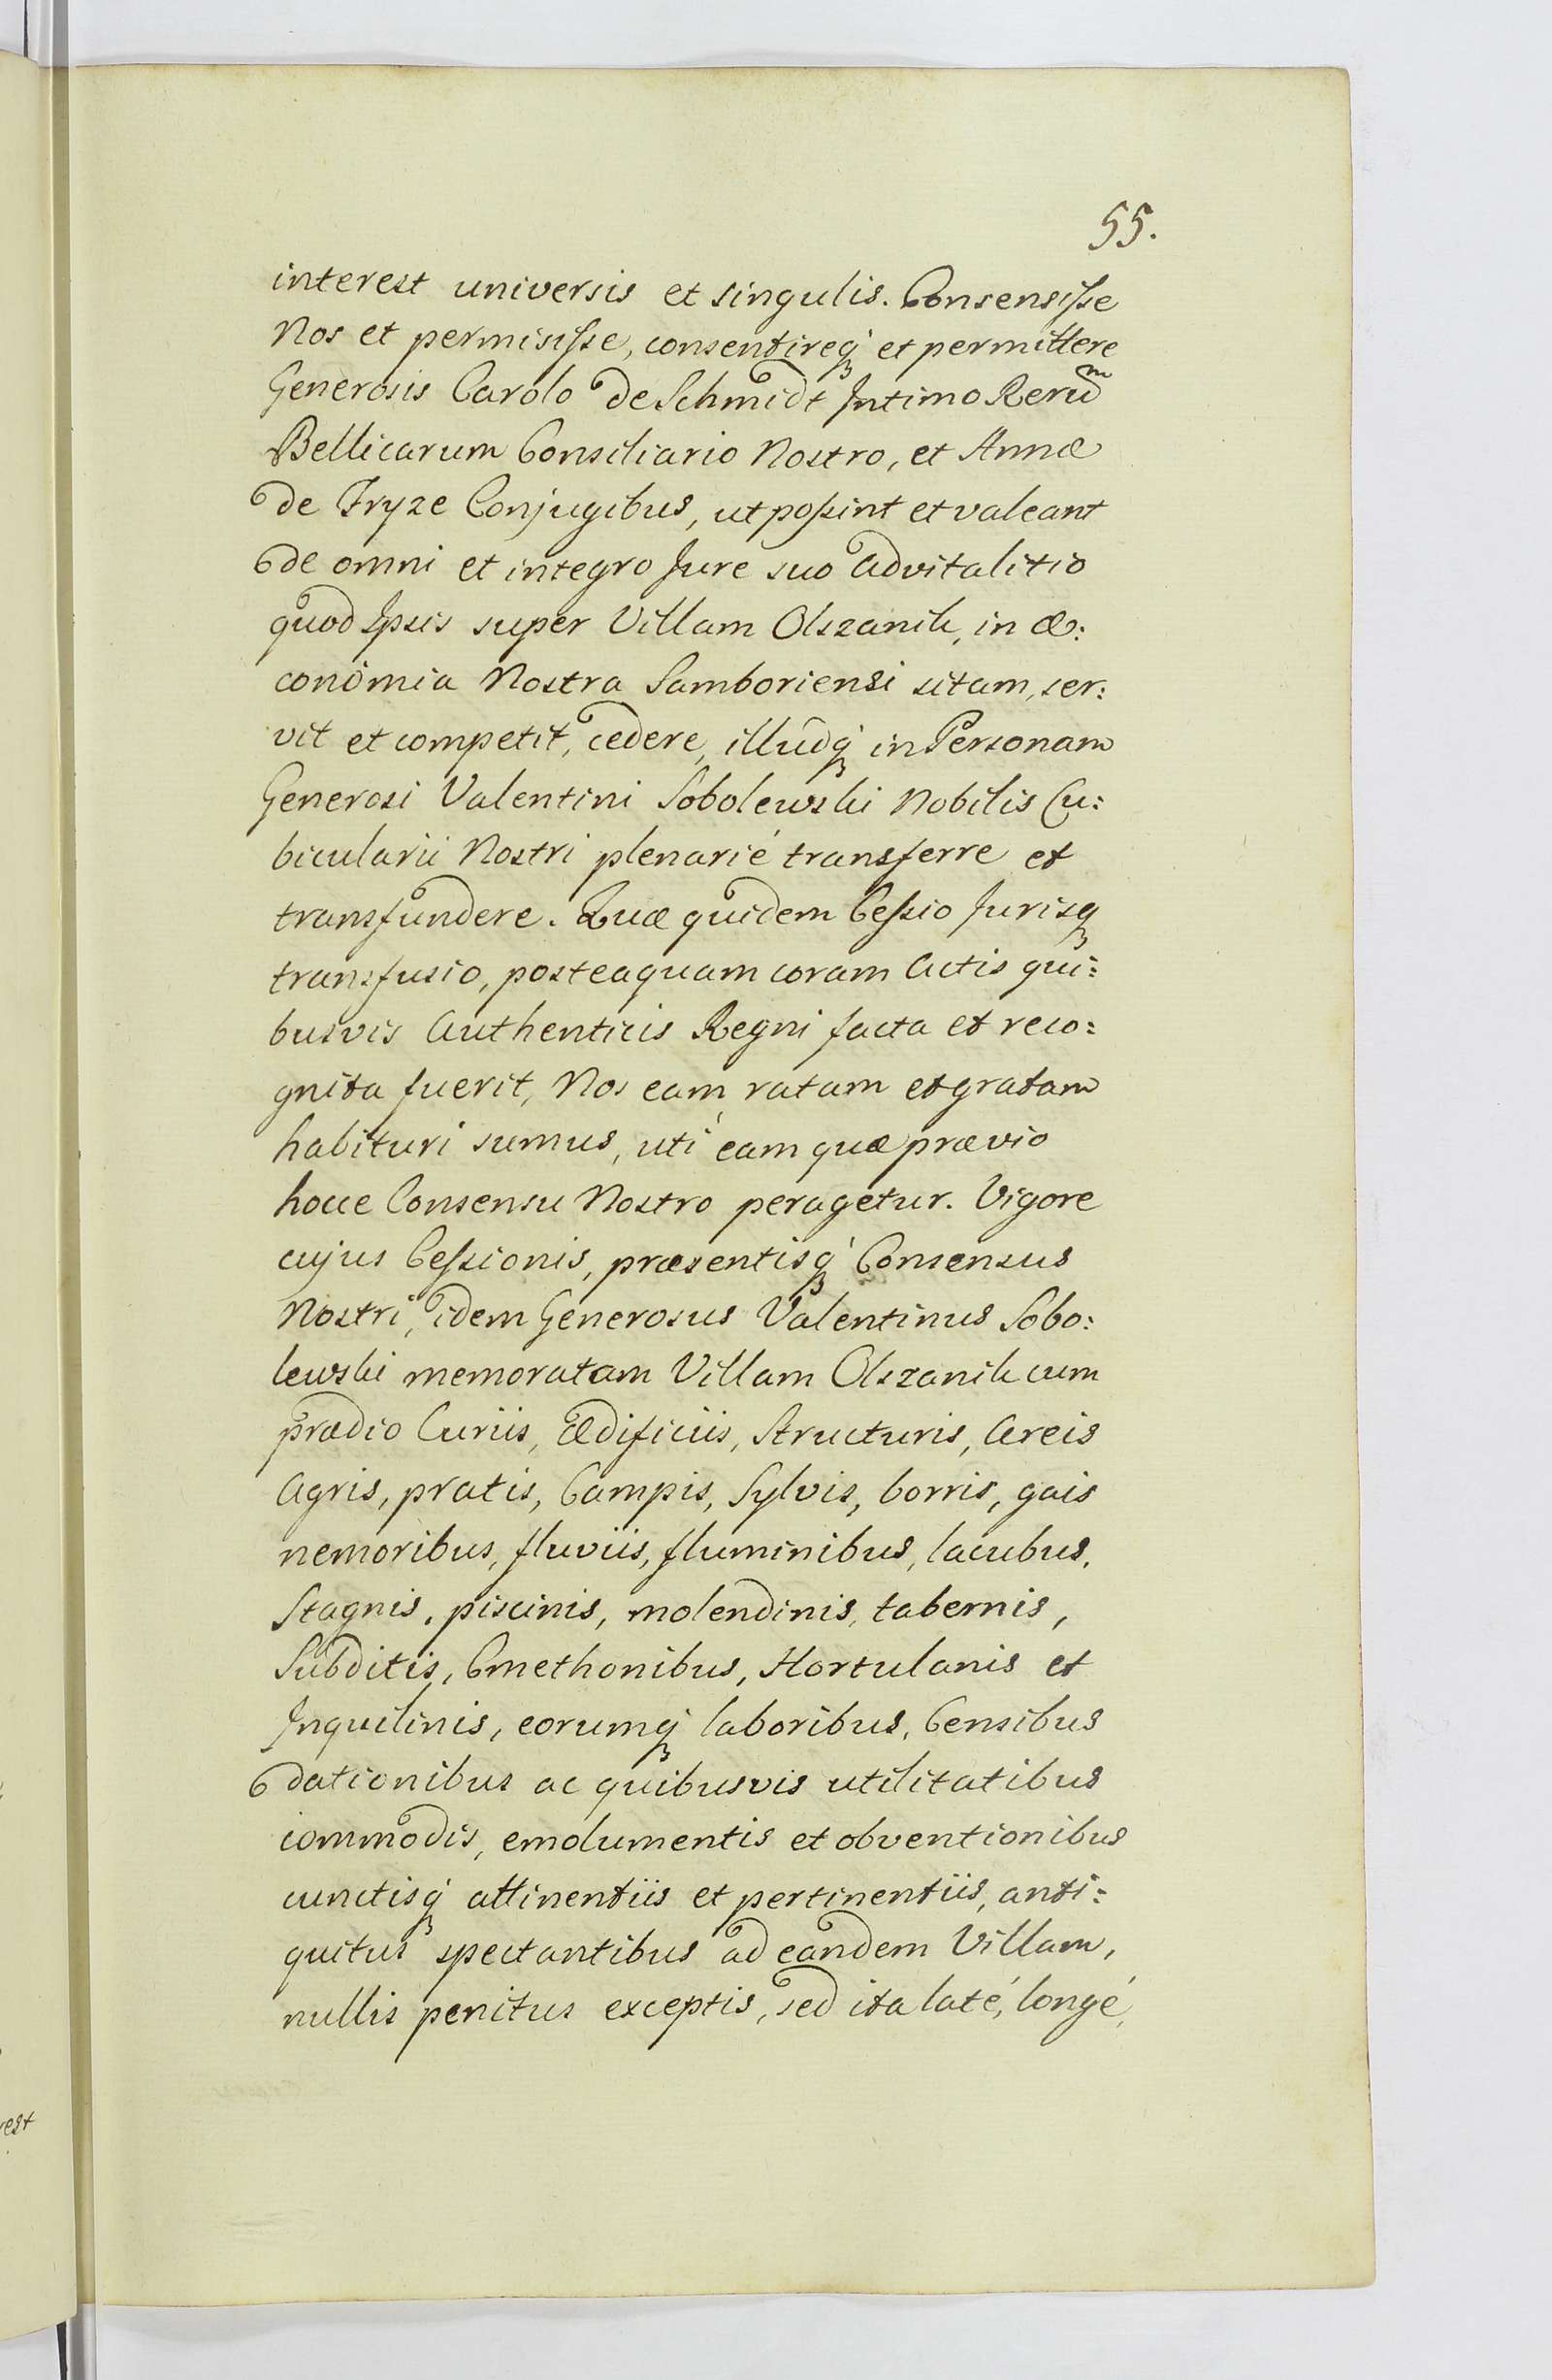 55.
interest universis et singulis. Consensiſse
Nos et permisiſse, consentireq́ et permittere
Generosis Carolo de Schmidt Intimo Rerum
Bellicarum Consiliario Nostro, et Annæ
de Fryze Conjugibus, ut poſsint et valeant
de omni et integro Jure suo advitalitio
quod Ipsis super Villam Olszanik, in œ:
conomia Nostra Samboriensi sitam, ser:
vit et competit, cedere, illudq́ in Personam
Generosi Valentini Sobolewski Nobilis Cu:
bicularii Nostri plenarié transferre et
transfundere. Quæ quidem Ceſsio Jurisq
transfusio, posteaquam coram Actis qui:
busvis Authenticis Regni facta et reco:
gnita fuerit, Nos eam ratam et gratam
habituri sumus, uti eam quæ prævio
hocce Consensu Nostro peragetur. Vigore
cujus Ceſsionis, præsentisq́ Consensus
Nostri, idem Generosus Valentinus Sobo:
lewski memoratam Villam Olszanik cum
prædio Curiis, Ædificiis, Structuris, Areis
Agris, pratis, Campis, Sylvis, borris, gais
nemoribus, fluviis, fluminibus, lacubus,
Stagnis, piscinis, molendinis, tabernis,
Subditis, Cmethonibus, Hortulanis et
Inquilinis, eorumq́ laboribus, Censibus
dationibus ac quibusvis utilitatibus
commodis, emolumentis et obventionibus
cunctisq́ attinentiis et pertinentiis, anti:
quitus spectantibus ad eandem Villam,
nullis penitus exceptis, sed ita laté, longé,
rest